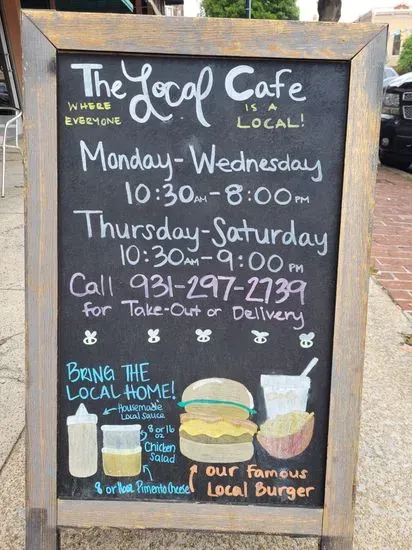 The Local Cafe
WHERE EVERYONE IS A LOCAL!
Monday-Wednesday
10:30AM-8:00PM
Thursday-Saturday
10:30AM-9:00PM
Call 931-297-2739
for Take-Out or Delivery
BRING THE
LOCAL HOME!
Housemade
Local Sauce
8 or 16
oz
Chicken
Salad
8 or 16oz Pimento Cheese
our Famous
Local Burger